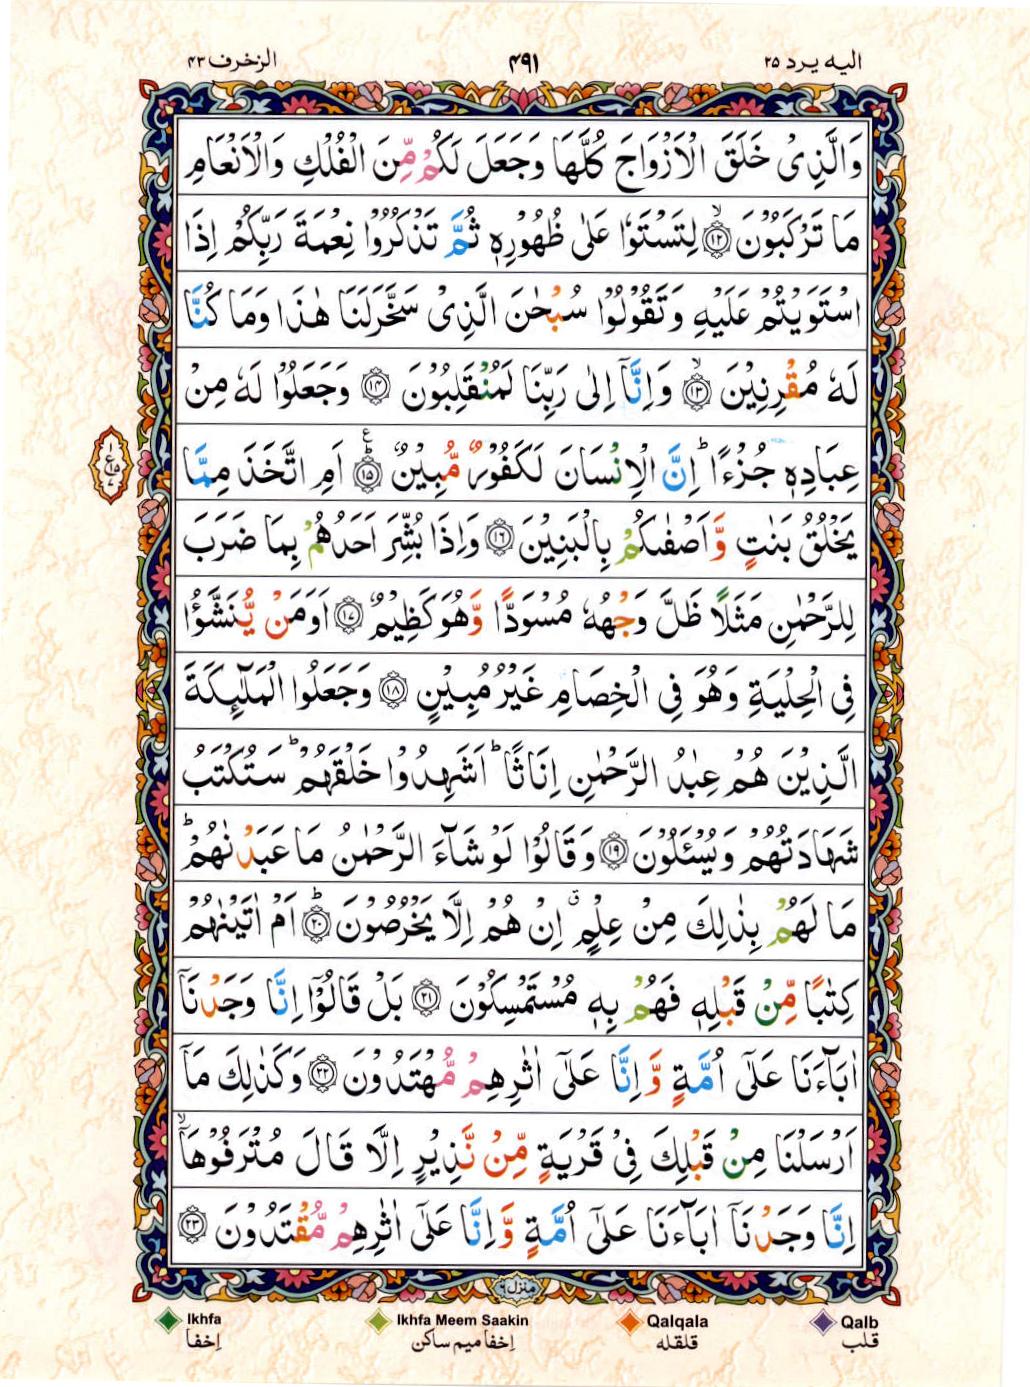 الزخرف ۴۳ ۴۹۱ الیه یرد ۲۵
وَالَّذِیْ خَلَقَ الْاَزْوَاجَ كُلَّهَا وَجَعَلَ لَكُمْ مِّنَ الْفُلْكِ وَالْاَنْعَامِ
مَا تَرْكَبُوْنَ ۙ﴿۱۲﴾ لِتَسْتَوٗا عَلٰی ظُهُوْرِهٖ ثُمَّ تَذْكُرُوْا نِعْمَةَ رَبِّكُمْ اِذَا
اسْتَوَیْتُمْ عَلَیْهِ وَتَقُوْلُوْا سُبْحٰنَ الَّذِیْ سَخَّرَلَنَا هٰذَا وَمَا كُنَّا
لَهٗ مُقْرِنِیْنَ ۙ﴿۱۳﴾ وَاِنَّاۤ اِلٰی رَبِّنَا لَمُنْقَلِبُوْنَ ﴿۱۴﴾ وَجَعَلُوْا لَهٗ مِنْ
عِبَادِهٖ جُزْءًا ؕ اِنَّ الْاِنْسَانَ لَكَفُوْرٌ مُّبِیْنٌ ؕ﴿۱۵﴾ ع اَمِ اتَّخَذَ مِمَّا
یَخْلُقُ بَنٰتٍ وَّاَصْفٰىكُمْ بِالْبَنِیْنَ ﴿۱۶﴾ وَاِذَا بُشِّرَ اَحَدُهُمْ بِمَا ضَرَبَ
لِلرَّحْمٰنِ مَثَلًا ظَلَّ وَجْهُهٗ مُسْوَدًّا وَّهُوَكَظِیْمٌ ﴿۱۷﴾ اَوَمَنْ یُّنَشَّؤُا
فِی الْحِلْیَةِ وَهُوَ فِی الْخِصَامِ غَیْرُ مُبِیْنٍ ﴿۱۸﴾ وَجَعَلُوا الْمَلٰٓىِٕكَةَ
الَّذِیْنَ هُمْ عِبٰدُ الرَّحْمٰنِ اِنَاثًا ؕ اَشَهِدُوْا خَلْقَهُمْ ؕ سَتُكْتَبُ
شَهَادَتُهُمْ وَیُسْـَٔلُوْنَ ﴿۱۹﴾ وَقَالُوْا لَوْشَآءَ الرَّحْمٰنُ مَا عَبَدْنٰهُمْ ؕ
مَا لَهُمْ بِذٰلِكَ مِنْ عِلْمٍ ۗ اِنْ هُمْ اِلَّا یَخْرُصُوْنَ ؕ﴿۲۰﴾ اَمْ اٰتَیْنٰهُمْ
كِتٰبًا مِّنْ قَبْلِهٖ فَهُمْ بِهٖ مُسْتَمْسِكُوْنَ ﴿۲۱﴾ بَلْ قَالُوْۤا اِنَّا وَجَدْنَاۤ
اٰبَآءَنَا عَلٰۤی اُمَّةٍ وَّاِنَّا عَلٰۤی اٰثٰرِهِمْ مُّهْتَدُوْنَ ﴿۲۲﴾ وَكَذٰلِكَ مَاۤ
اَرْسَلْنَا مِنْ قَبْلِكَ فِیْ قَرْیَةٍ مِّنْ نَّذِیْرٍ اِلَّا قَالَ مُتْرَفُوْهَاۤ ۙ
اِنَّا وَجَدْنَاۤ اٰبَآءَنَا عَلٰۤی اُمَّةٍ وَّاِنَّا عَلٰۤی اٰثٰرِهِمْ مُّقْتَدُوْنَ ﴿۲۳﴾
منزل ۶
Ikhfa Ikhfa Meem Saakin Qalqala Qalb
إخفا إخفا میم ساکن قلقله قلب